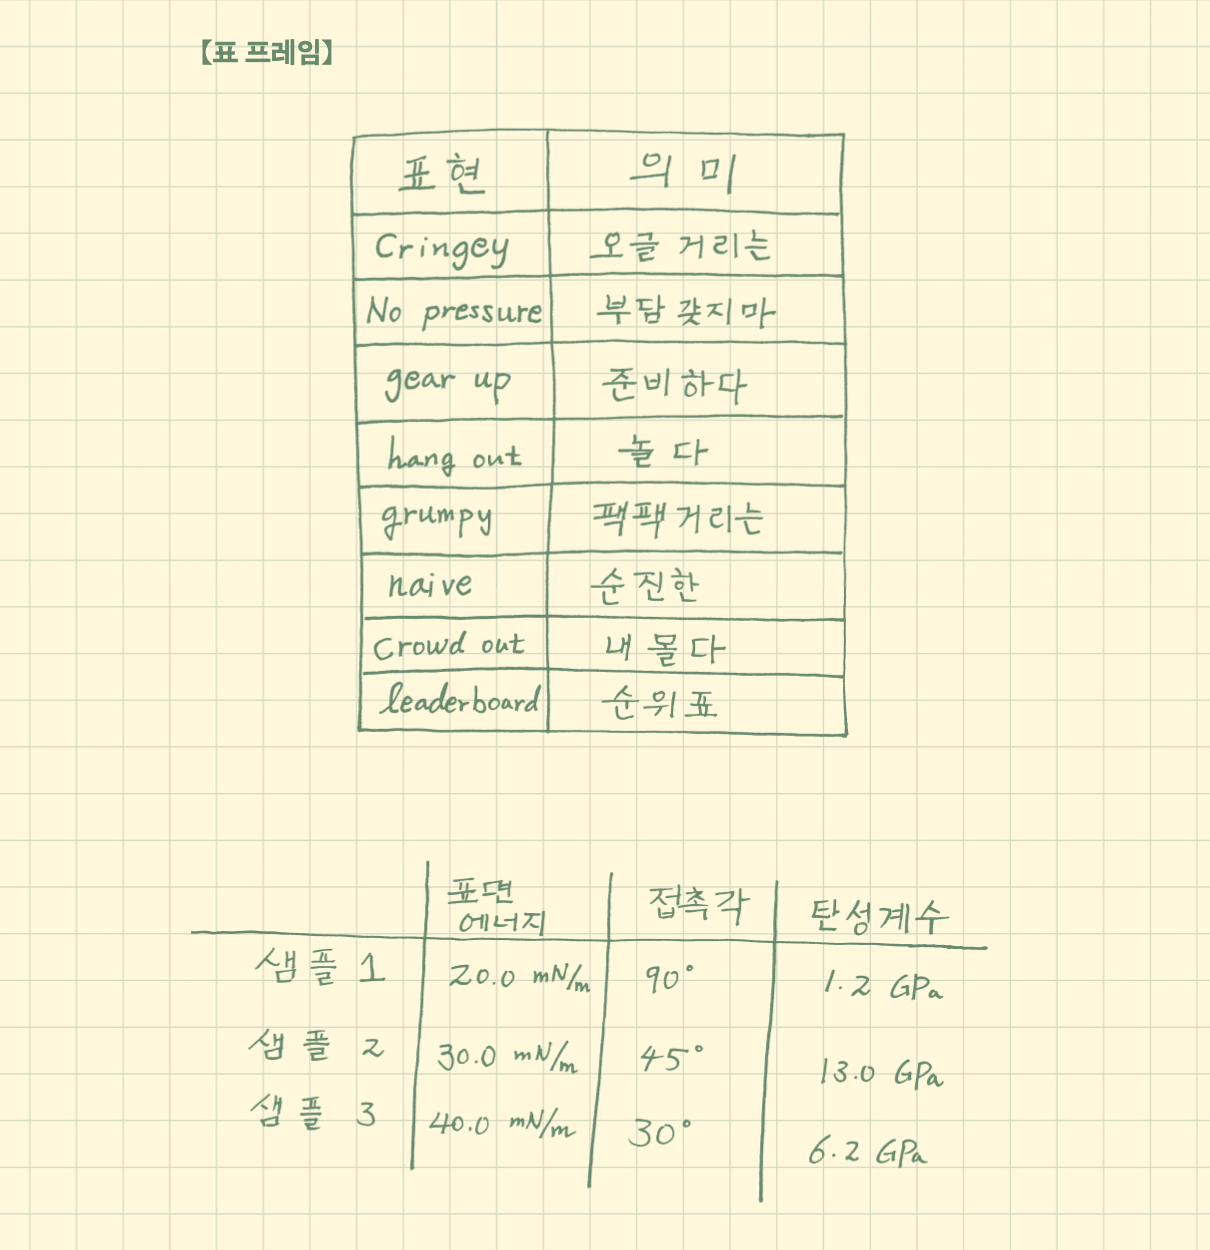 【표 프레임】
표현 의미
Cringey 오글 거리는
No pressure 부담 갖지마
gear up 준비하다
hang out 놀다
grumpy 팩팩거리는
naive 순진한
Crowd out 내몰다
leaderboard 순위표
표면 에너지 접촉각 탄성계수
샘플 1 20.0 mN/m 90° 1.2 GPa
샘플 2 30.0 mN/m 45° 13.0 GPa
샘플 3 40.0 mN/m 30° 6.2 GPa